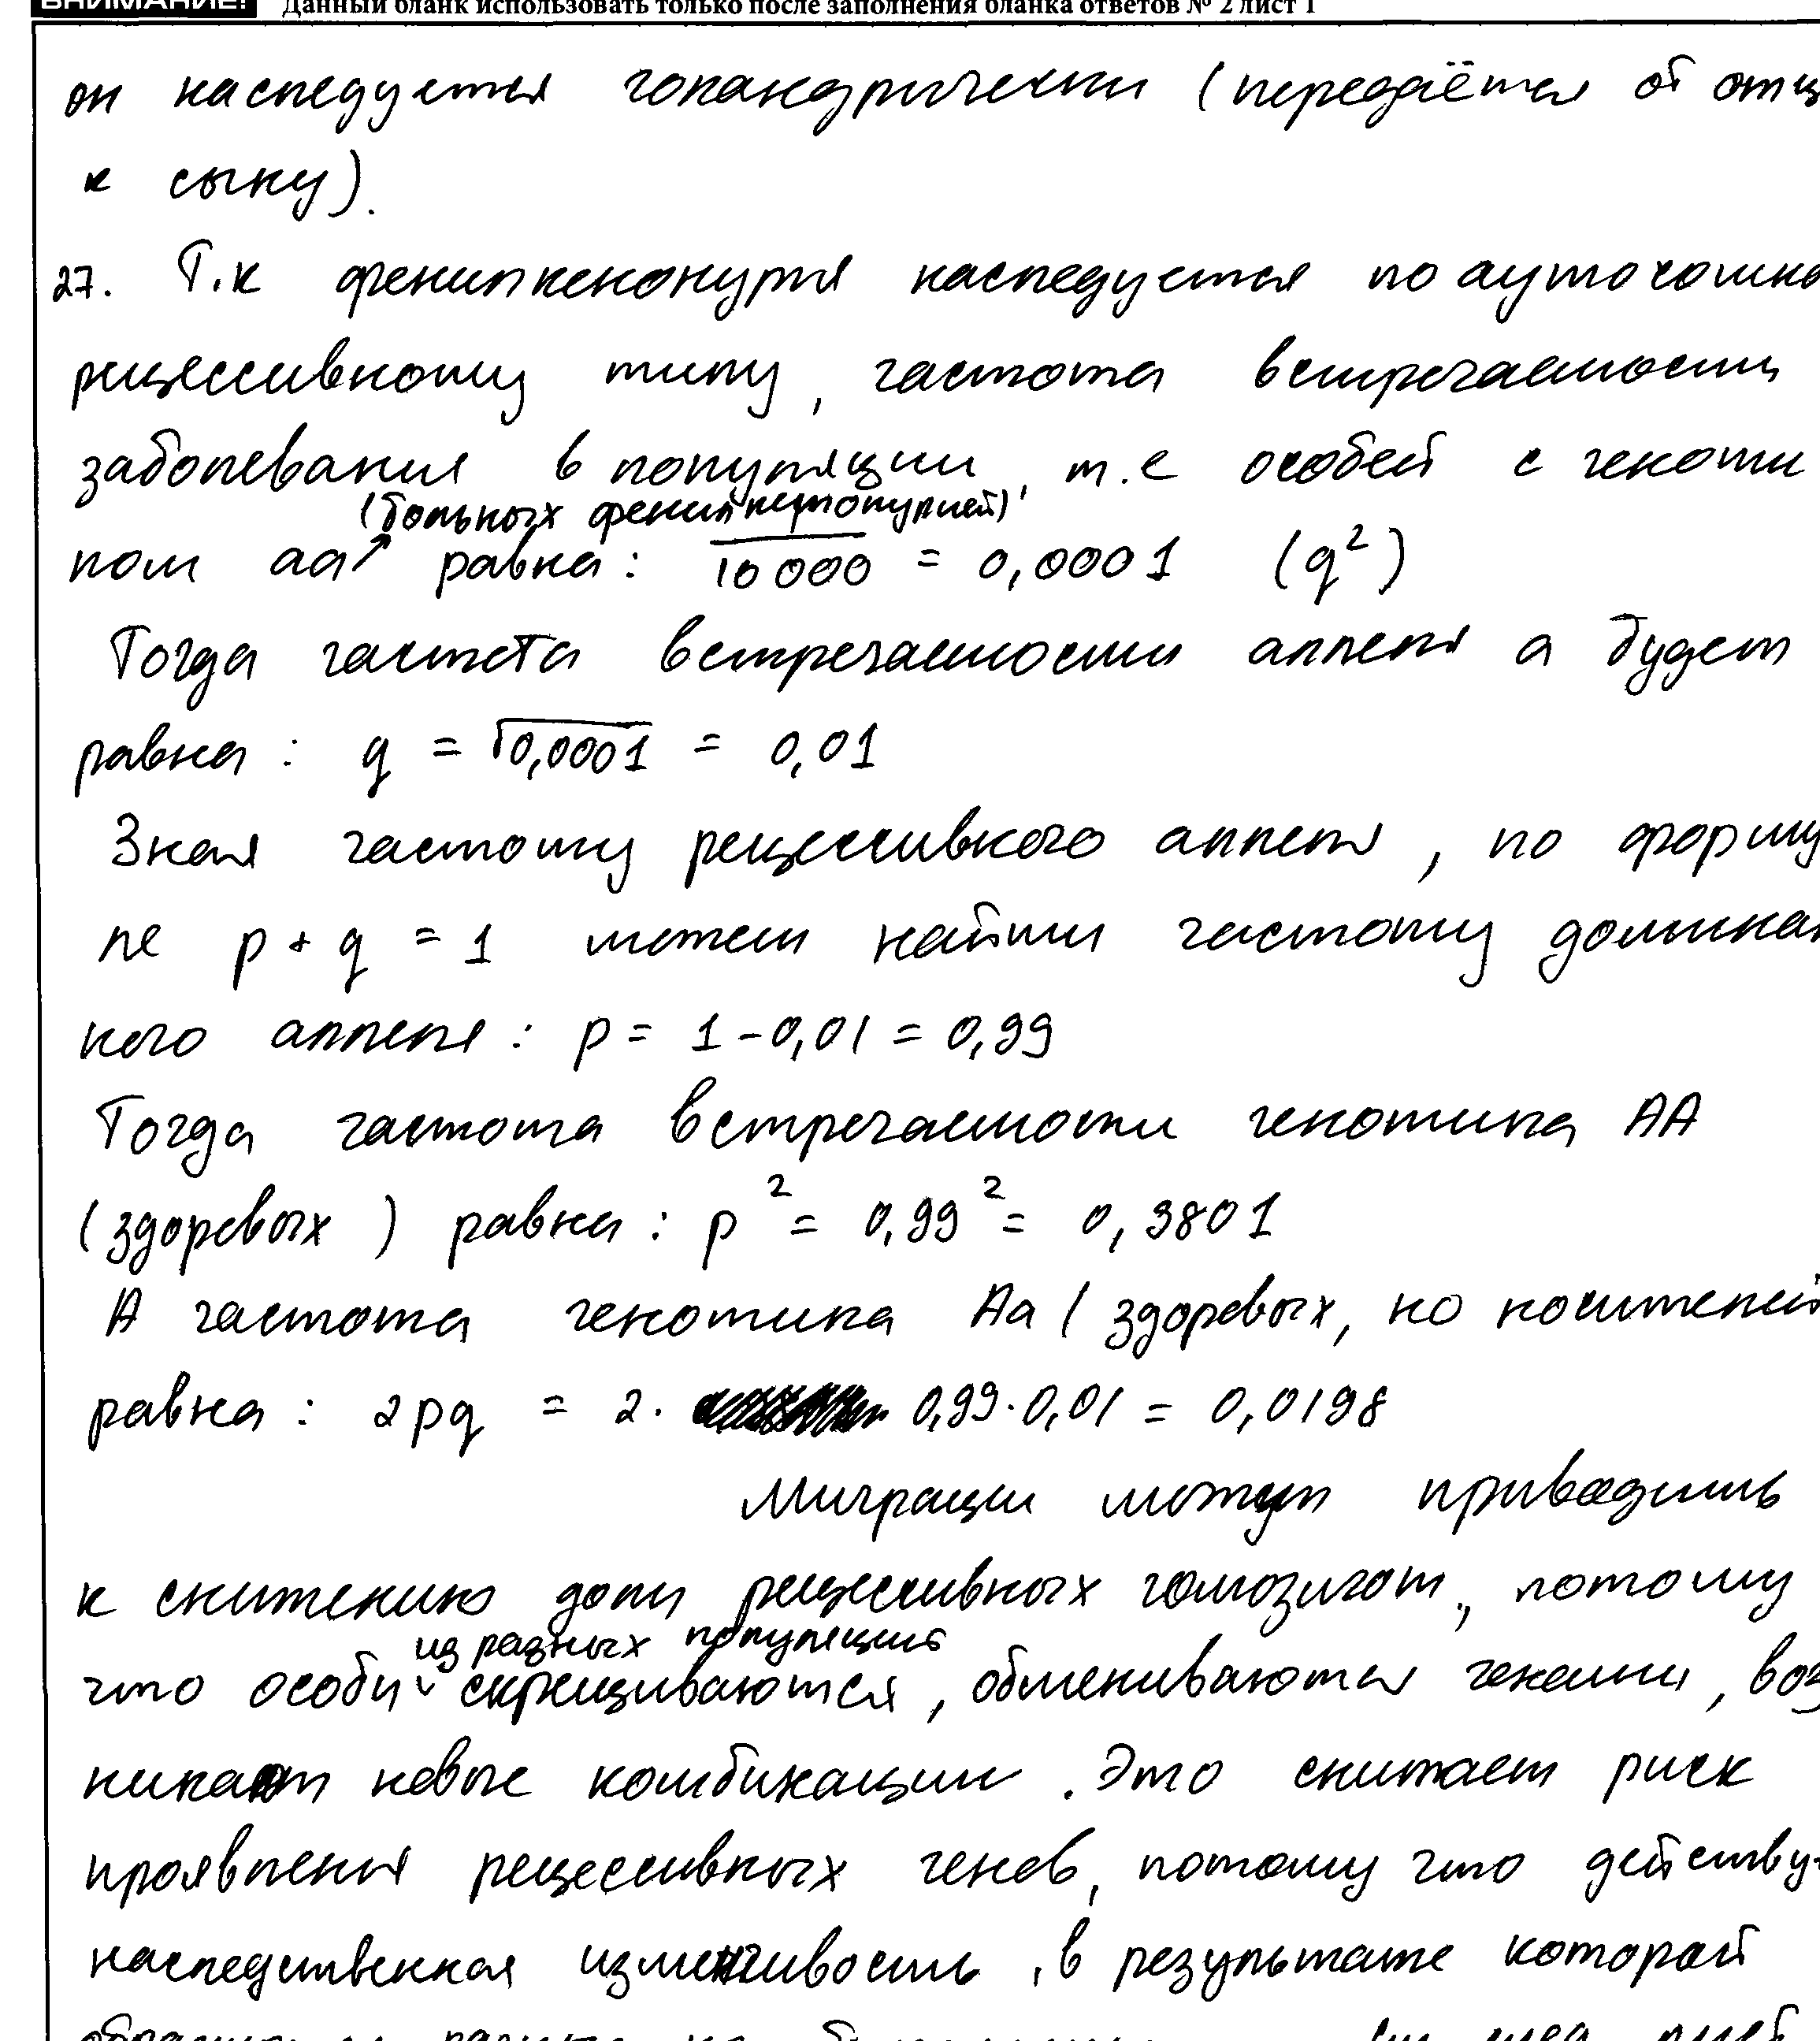 ВНИМАНИЕ! Данный бланк использовать только после заполнения бланка ответов № 2 лист 1
он наследуется голандрически (передаётся от отц
к сыну).
27. Т.к фенилкенонурия наследуется по аутосомно
рецессивному типу, частота встречаемости
заболевания в популяции, т.е особей с геноти
(больных фенилкетонурией)
пом аа равна: 10 000 = 0,0001 (q²)
Тогда частота встречаемости аллеля а будет
равна: q = √0,0001 = 0,01
Зная частоту рецессивного аллеля, по форму
ле p + q = 1 можем найти частоту доминан
ного аллеля: p = 1 - 0,01 = 0,99
Тогда частота встречаемости генотипа АА
(здоровых) равна: p² = 0,99² = 0,9801
А частота генотипа Аа (здоровых, но носителей
равна: 2pq = 2 · 0,99 · 0,01 = 0,0198
Миграции могут приводить
к снижению доли рецессивных гомозигот, потому
из разных популяций
что особи скрещиваются, обмениваются генами, воз
никают новые комбинации. Это снижает риск
проявления рецессивных генов, потому что действу
наследственная изменчивость, в результате которой